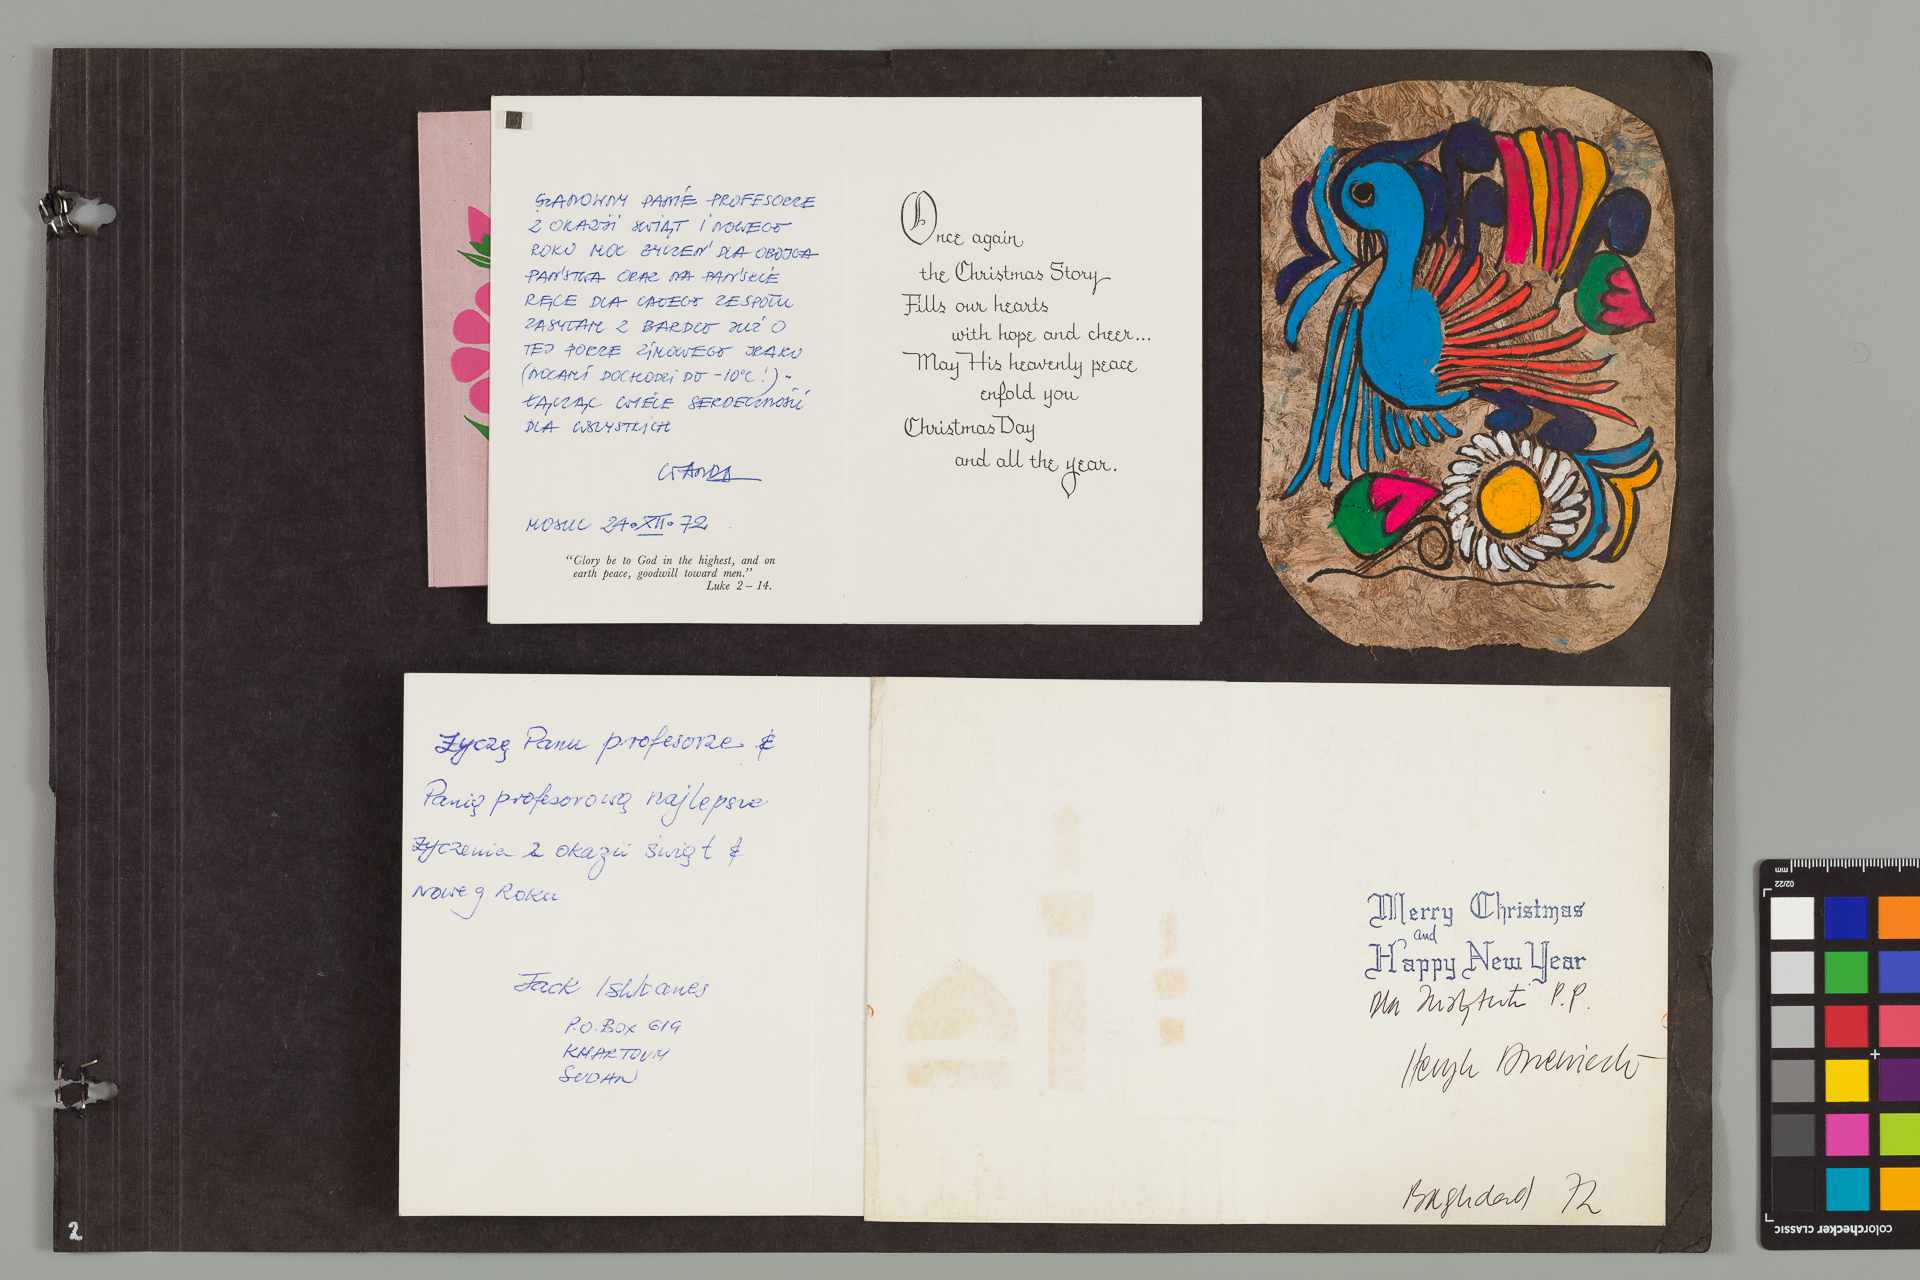 SZANOWNY PANIE PROFESORZE
Z OKAZJI ŚWIĄT I NOWEGO
ROKU MOC ŻYCZEŃ DLA OBOJGA
PAŃSTWA ORAZ NA PAŃSKIE
RĘCE DLA CAŁEGO ZESPOŁU
ZASYŁAM Z BARDZO JUŻ O
TEJ PORZE ZIMOWEGO IRAKU
(NOCAMI DOCHODZI DO -10°C!).
ŁĄCZĄC WIELE SERDECZNOŚCI
DLA WSZYSTKICH
WANDA
MOSUL 24.XII.72
“Glory be to God in the highest, and on
earth peace, goodwill toward men.”
Luke 2 – 14.
Once again
the Christmas Story
Fills our hearts
with hope and cheer...
May His heavenly peace
enfold you
Christmas Day
and all the year.
Życzę Panu profesorze &
Panią profesorową najlepsze
Życzenia z okazii świąt &
Noweg Roku
Jack Ishkanes
P.O.BOX 619
KHARTOUM
SUDAN
Merry Christmas
and
Happy New Year
Dla Instytutu P.P.
Baghdad 72
2
mm
02/22
colorchecker CLASSIC